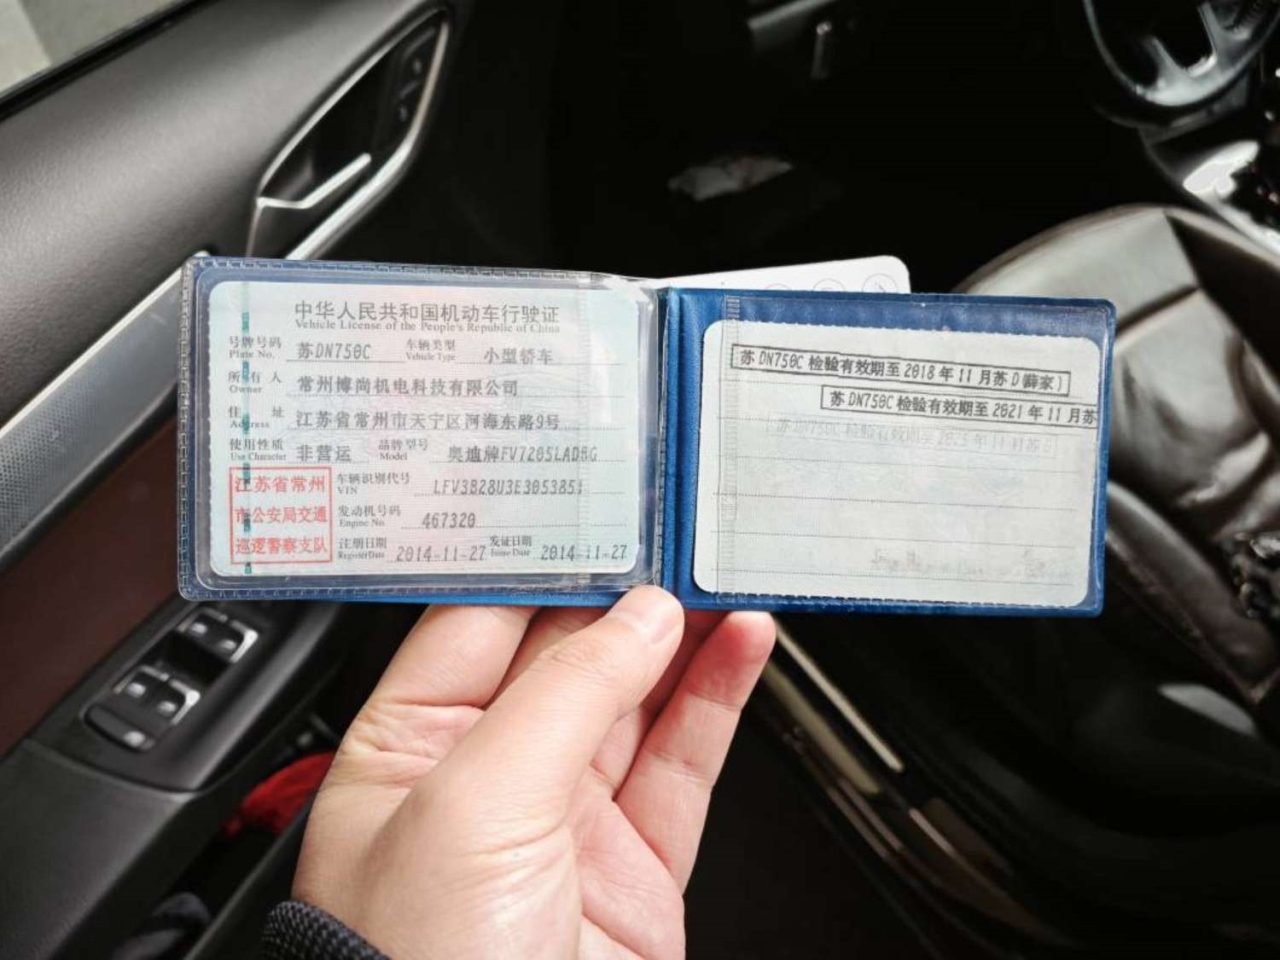 中华人民共和国机动车行驶证
Vehicle License of the People's Republic of China
号牌号码 苏DN750C 车辆类型 小型轿车
Plate No. Vehicle Type
所有人 常州博尚机电科技有限公司
Owner
住 址 江苏省常州市天宁区河海东路9号
Address
使用性质 非营运 品牌型号 奥迪牌FV7205LADBG
Use Character Model
江苏省常州
市公安局交通
巡逻警察支队
车辆识别代号 LFV3B28U3E3053851
VIN
发动机号码 467320
Engine No.
注册日期 2014-11-27 发证日期 2014-11-27
Register Date Issue Date
苏DN750C 检验有效期至 2018 年 11 月苏D(薛家)
苏DN750C 检验有效期至 2021 年 11 月苏